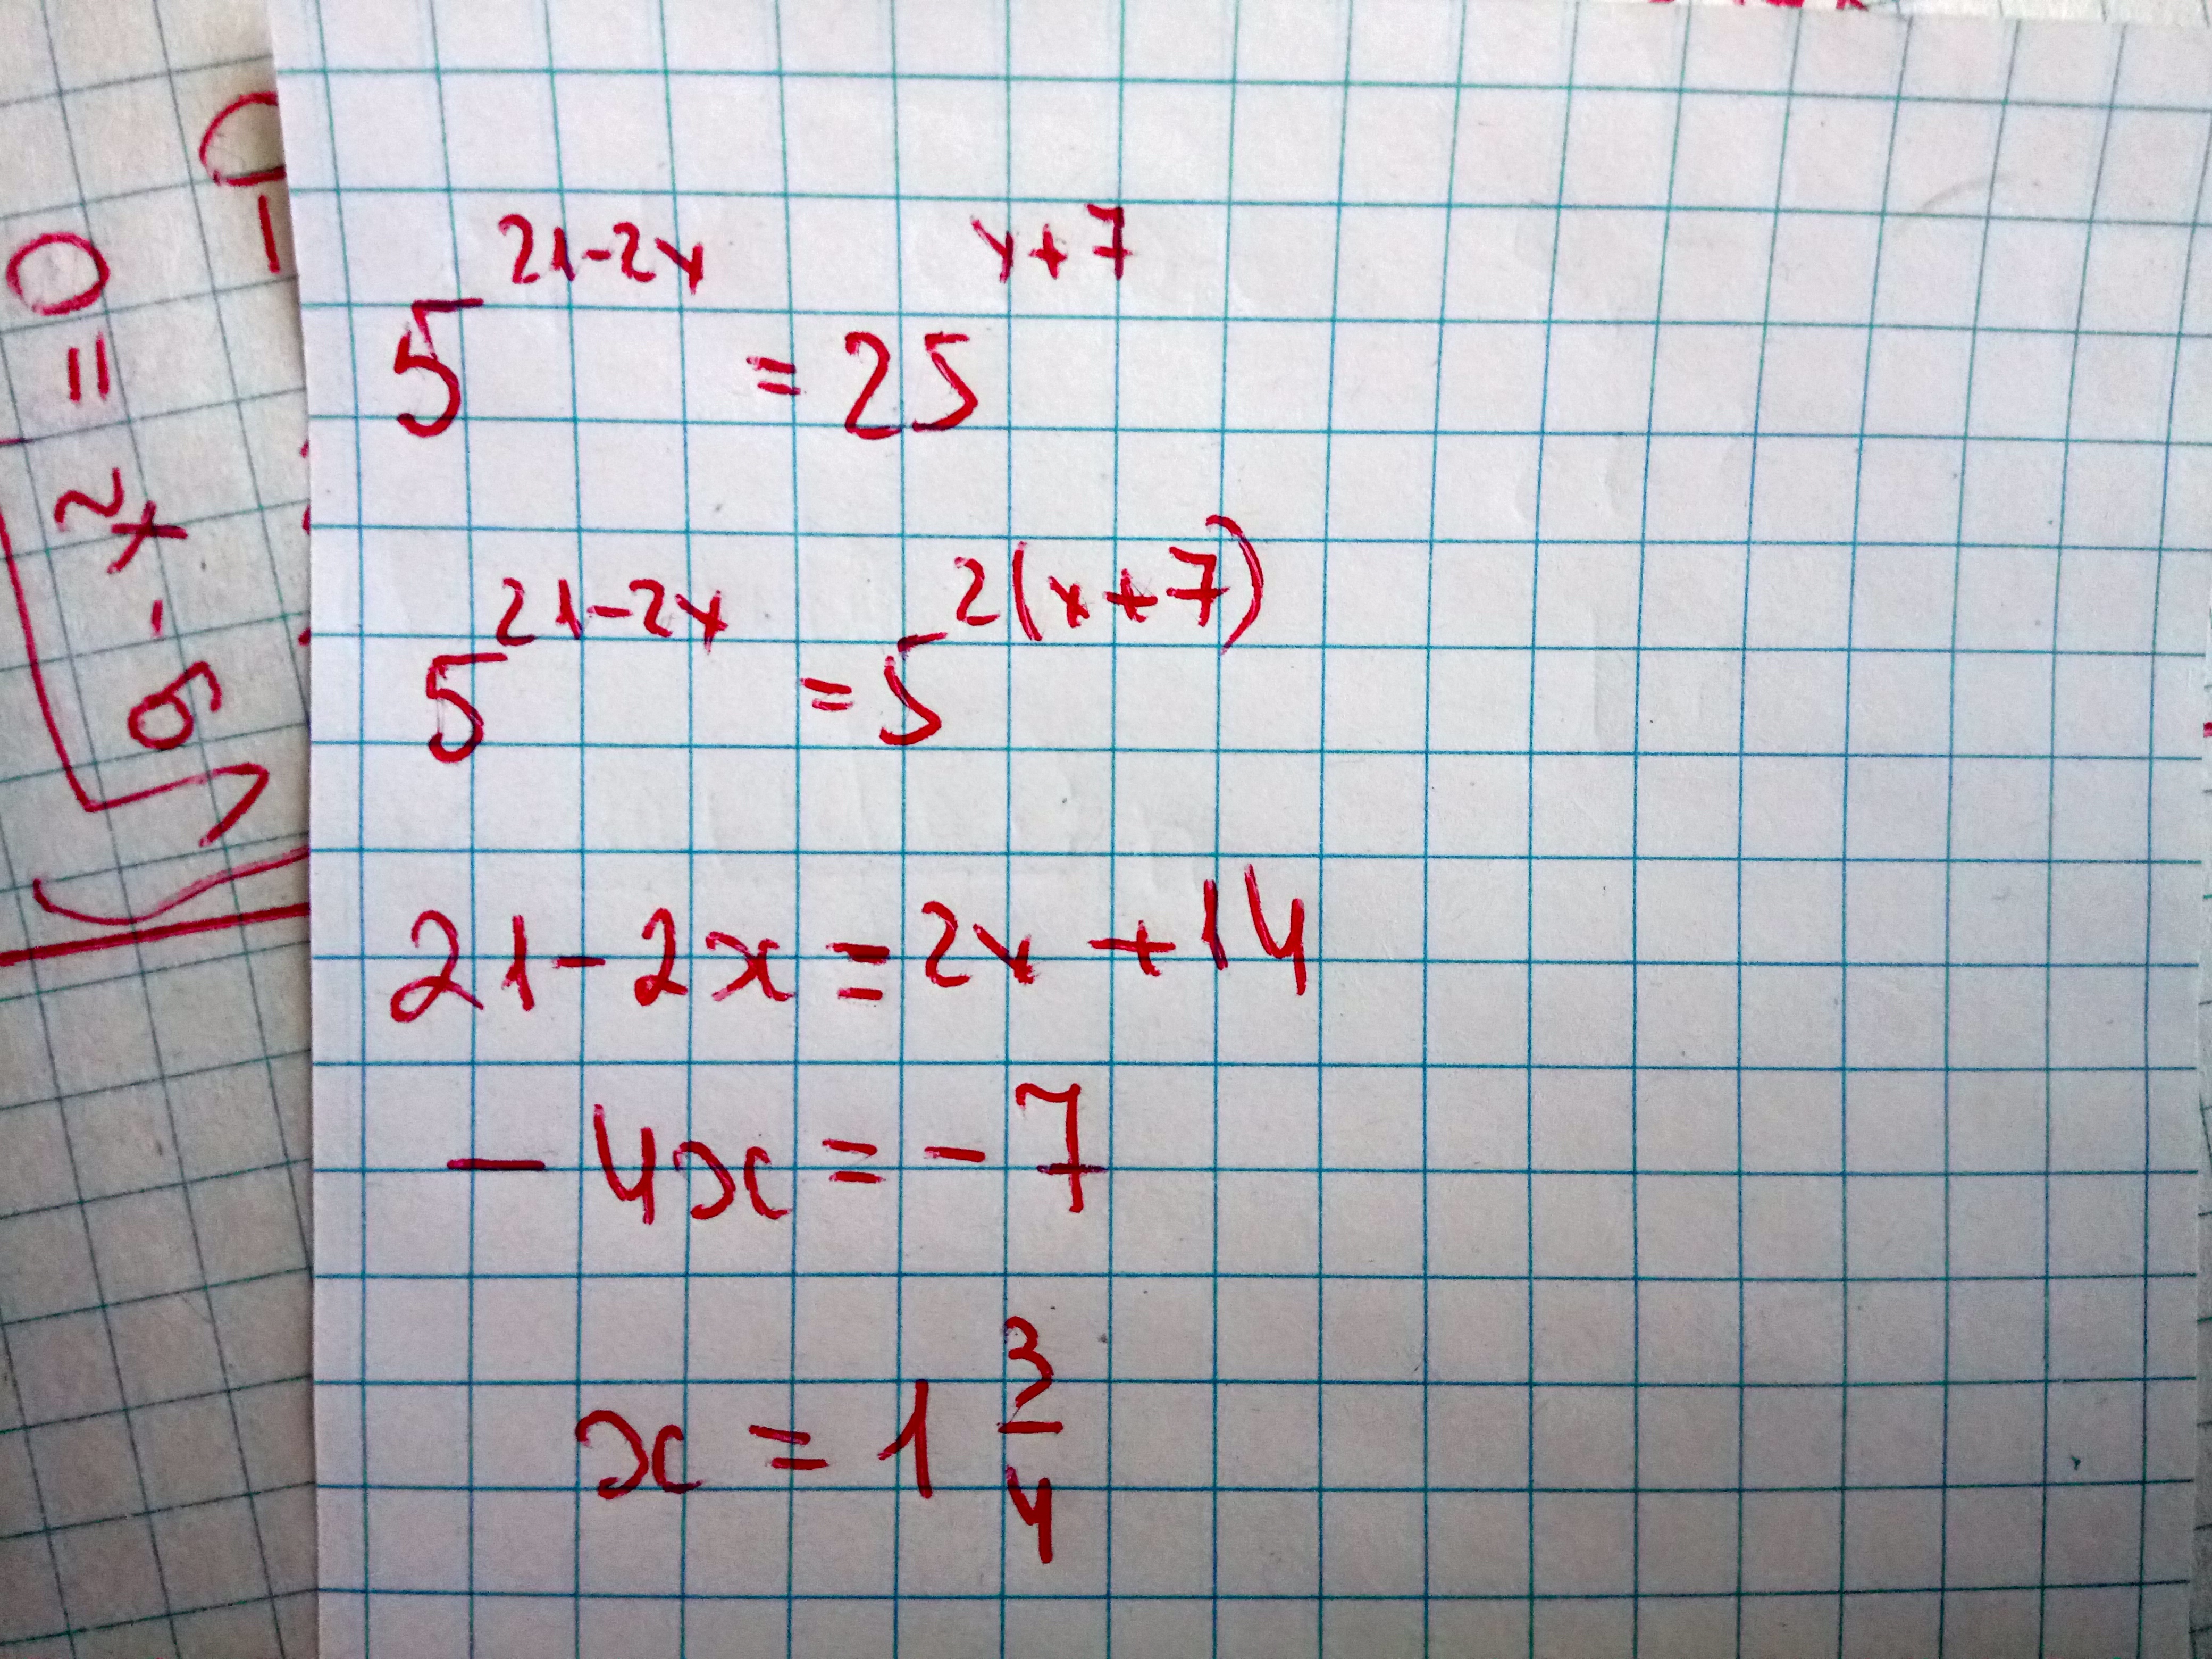 5^{21-2x} = 25^{x+7}
5^{21-2x} = 5^{2(x+7)}
21-2x = 2x + 14
- 4x = - 7
x = 1 \frac{3}{4}
9 - x^2 = 0